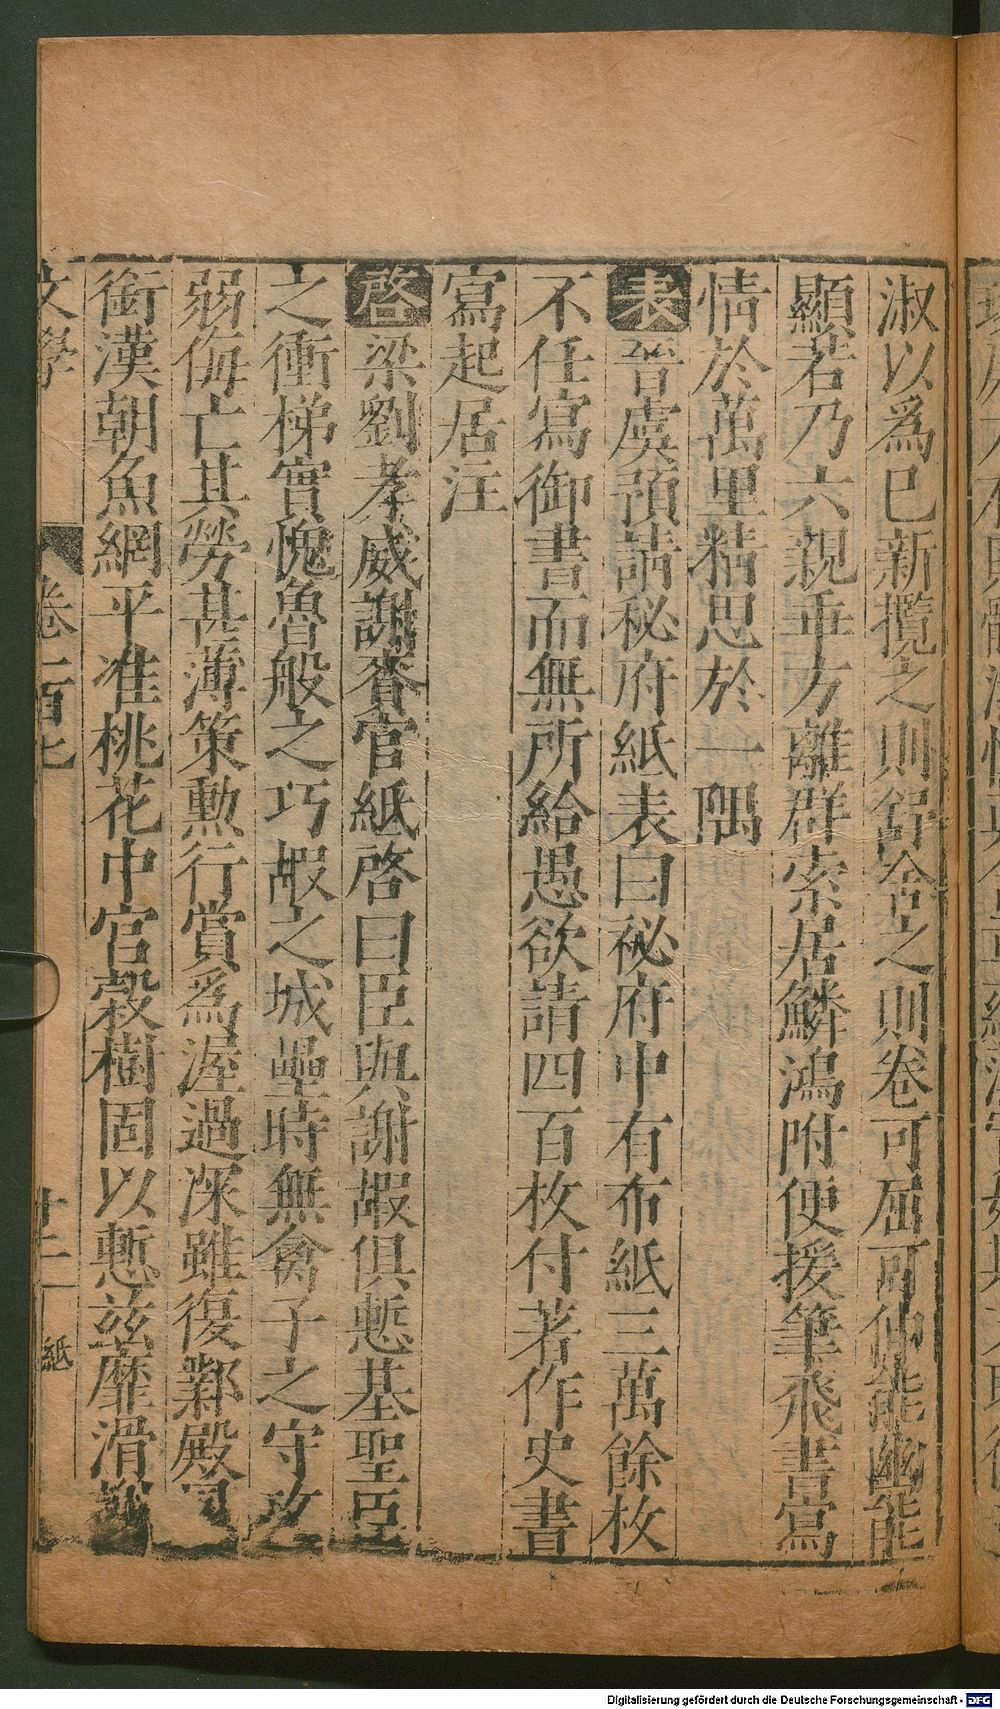 淑以爲已新攬之則舒舍之則卷可屈可伸能幽能
顯若乃六親乖方離群索居鱗鴻附便援筆飛書寫
情於萬里精思於一隅
表晉虞預請秘府紙表曰祕府中有布紙三萬餘枚
不任寫御書而無所給愚欲請四百枚付著作史書
寫起居注
啓梁劉孝威謝賚官紙啓曰臣與謝嘏俱慙基聖臣
之衝梯實愧魯般之巧嘏之城壘時無禽子之守攻
弱侮亡其勞甚薄策勲行賞爲渥過深雖復鄴殿
銜漢朝魚網平准桃花中宮榖樹固以慙茲靡滑
文學
卷一百七
十二
紙
Digitalisierung gefördert durch die Deutsche Forschungsgemeinschaft - DFG